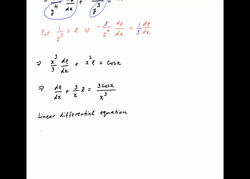 Put 1/y³ = z ⇒ -3/y⁴ dy/dx = 1/3 dz/dx
⇒ x³/3 dz/dx + x² z = cosx
⇒ dz/dx + 3/x z = 3cosx/x³
Linear differential equation